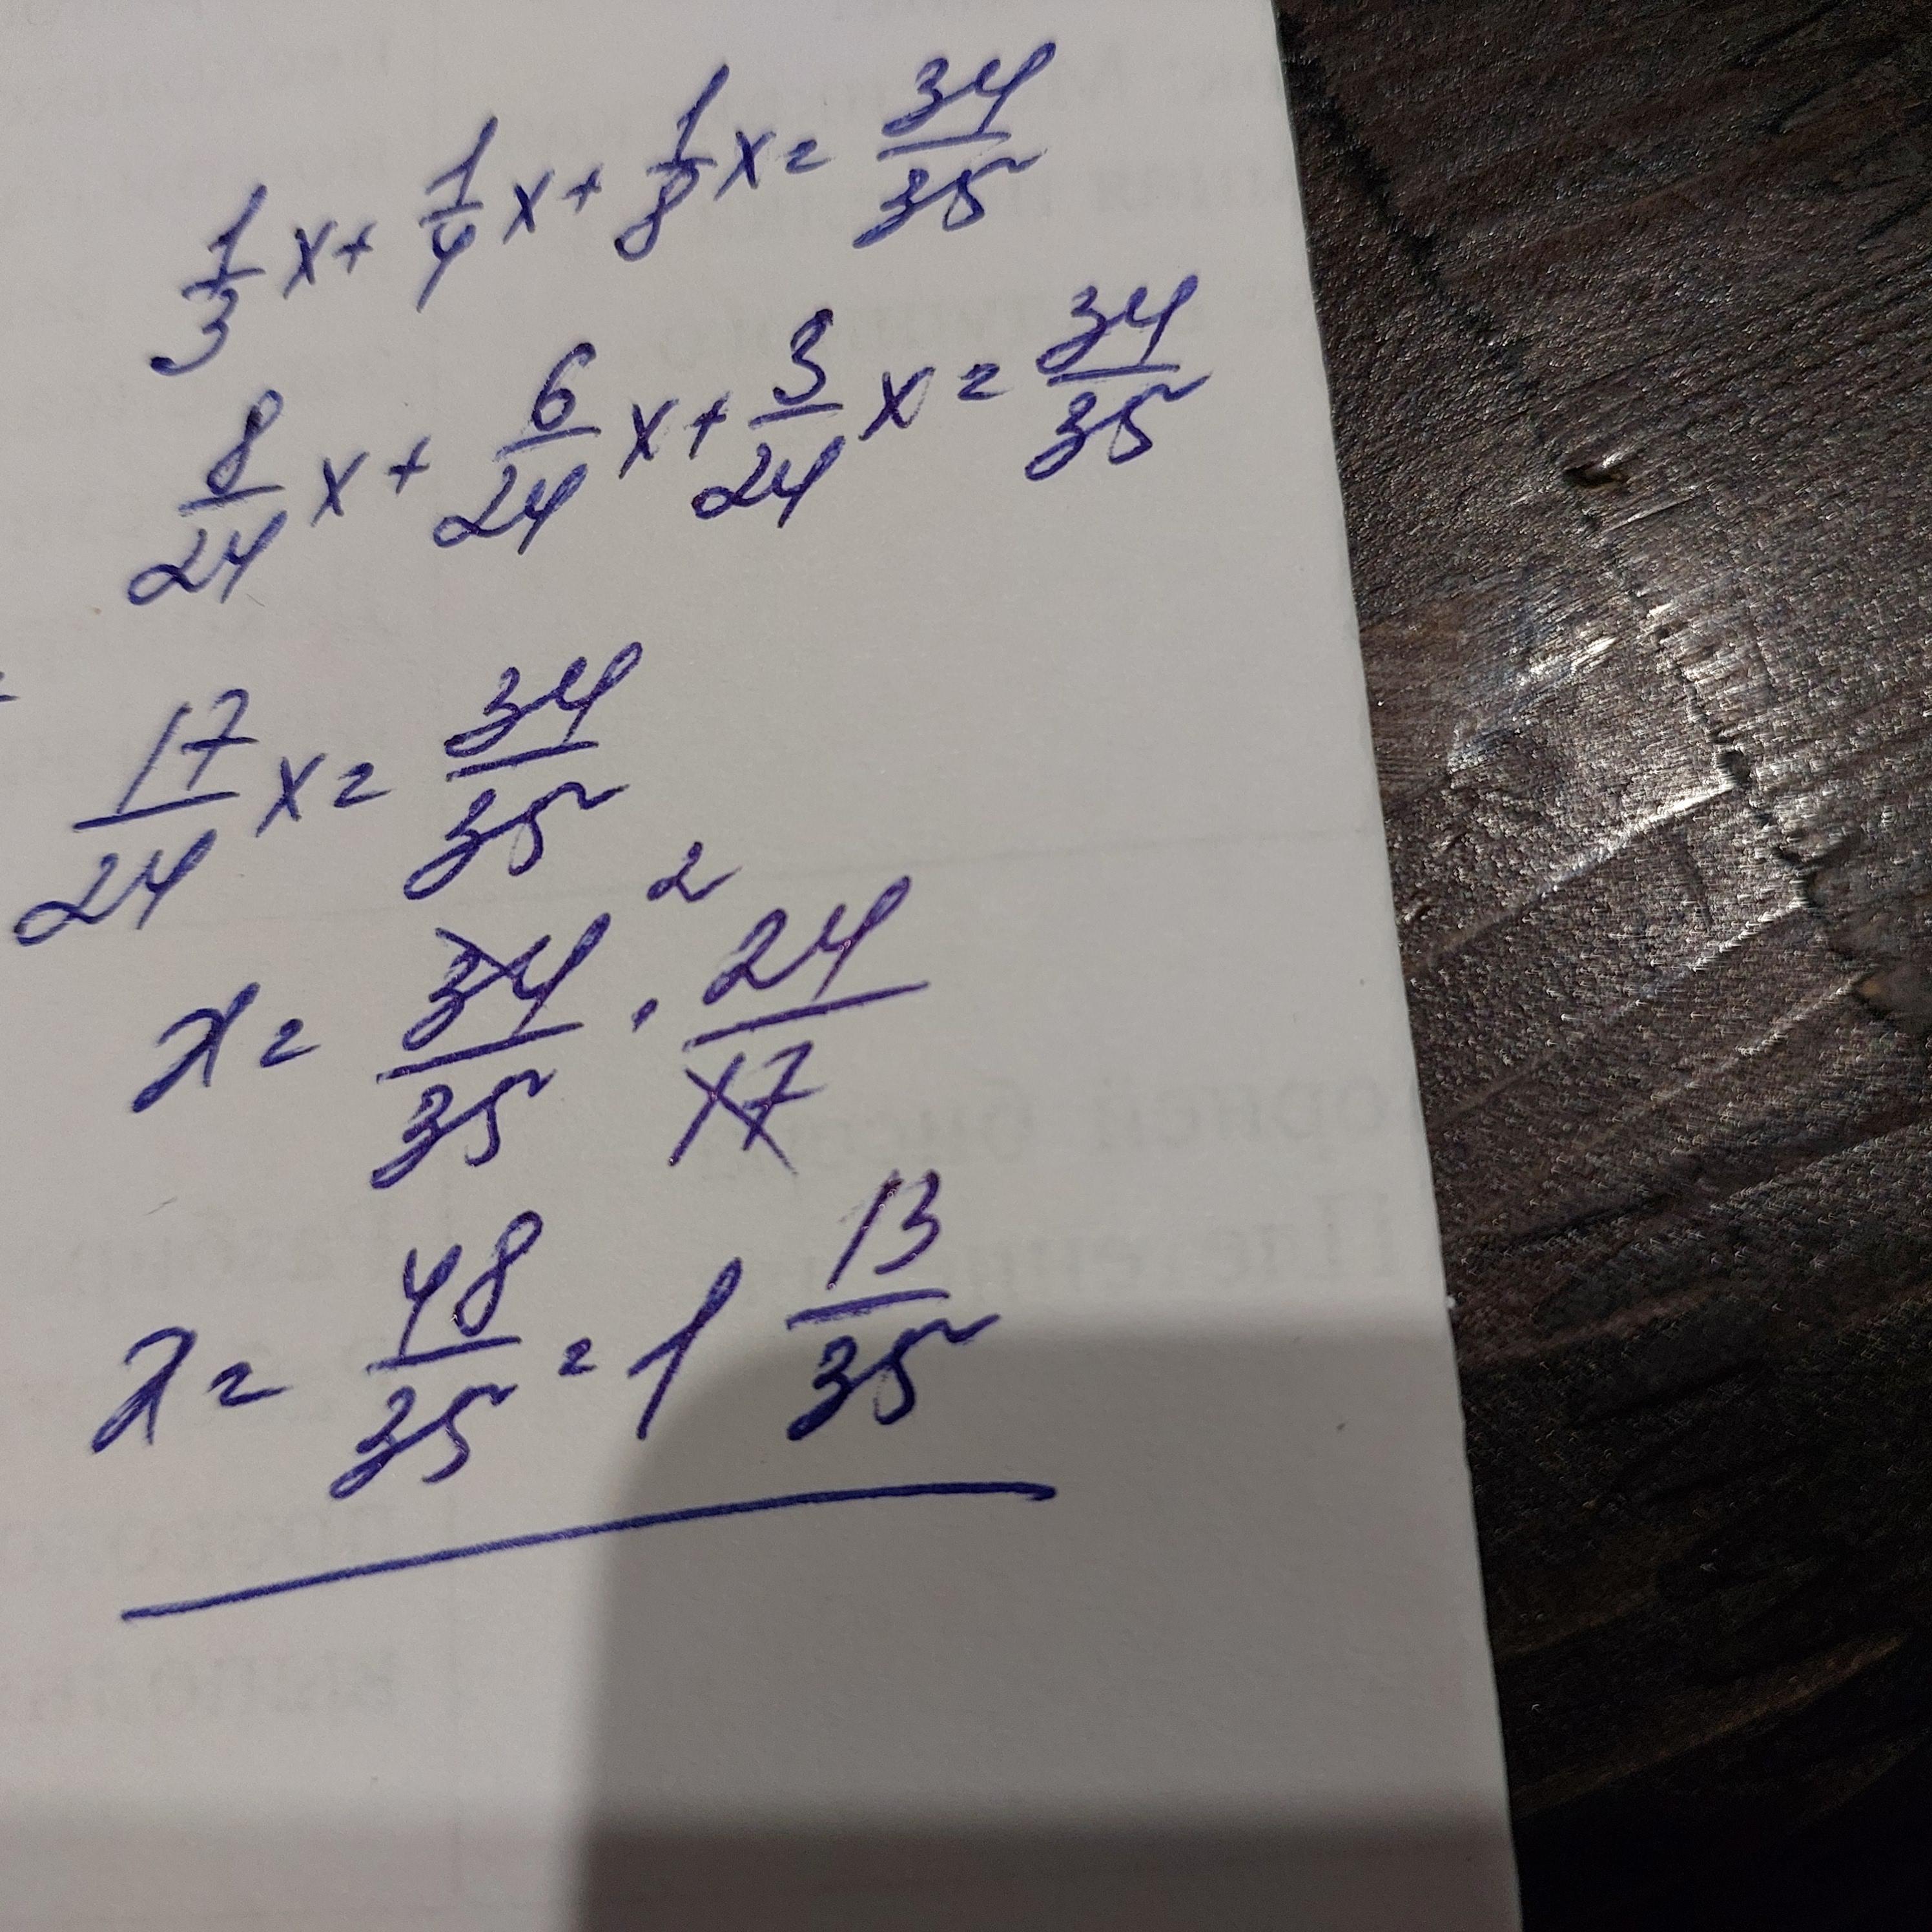 1/3 x + 1/4 x + 1/8 x = 34/35
8/24 x + 6/24 x + 3/24 x = 34/35
17/24 x = 34/35
x = 34/35 2 · 24/17
x = 48/35 = 1 13/35